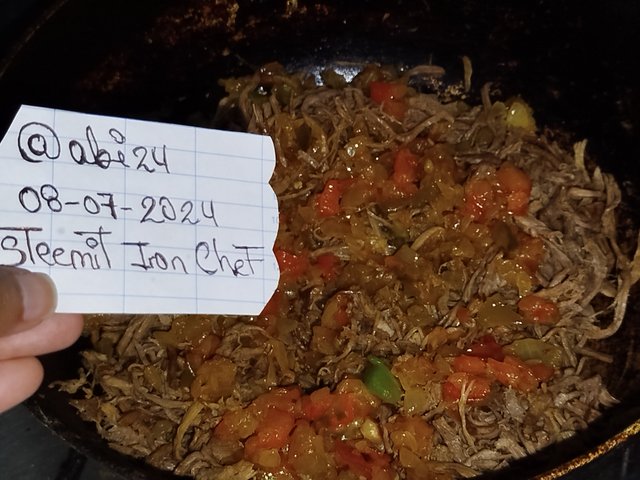 @abi24
08-07-2024
Steemit Iron Chef